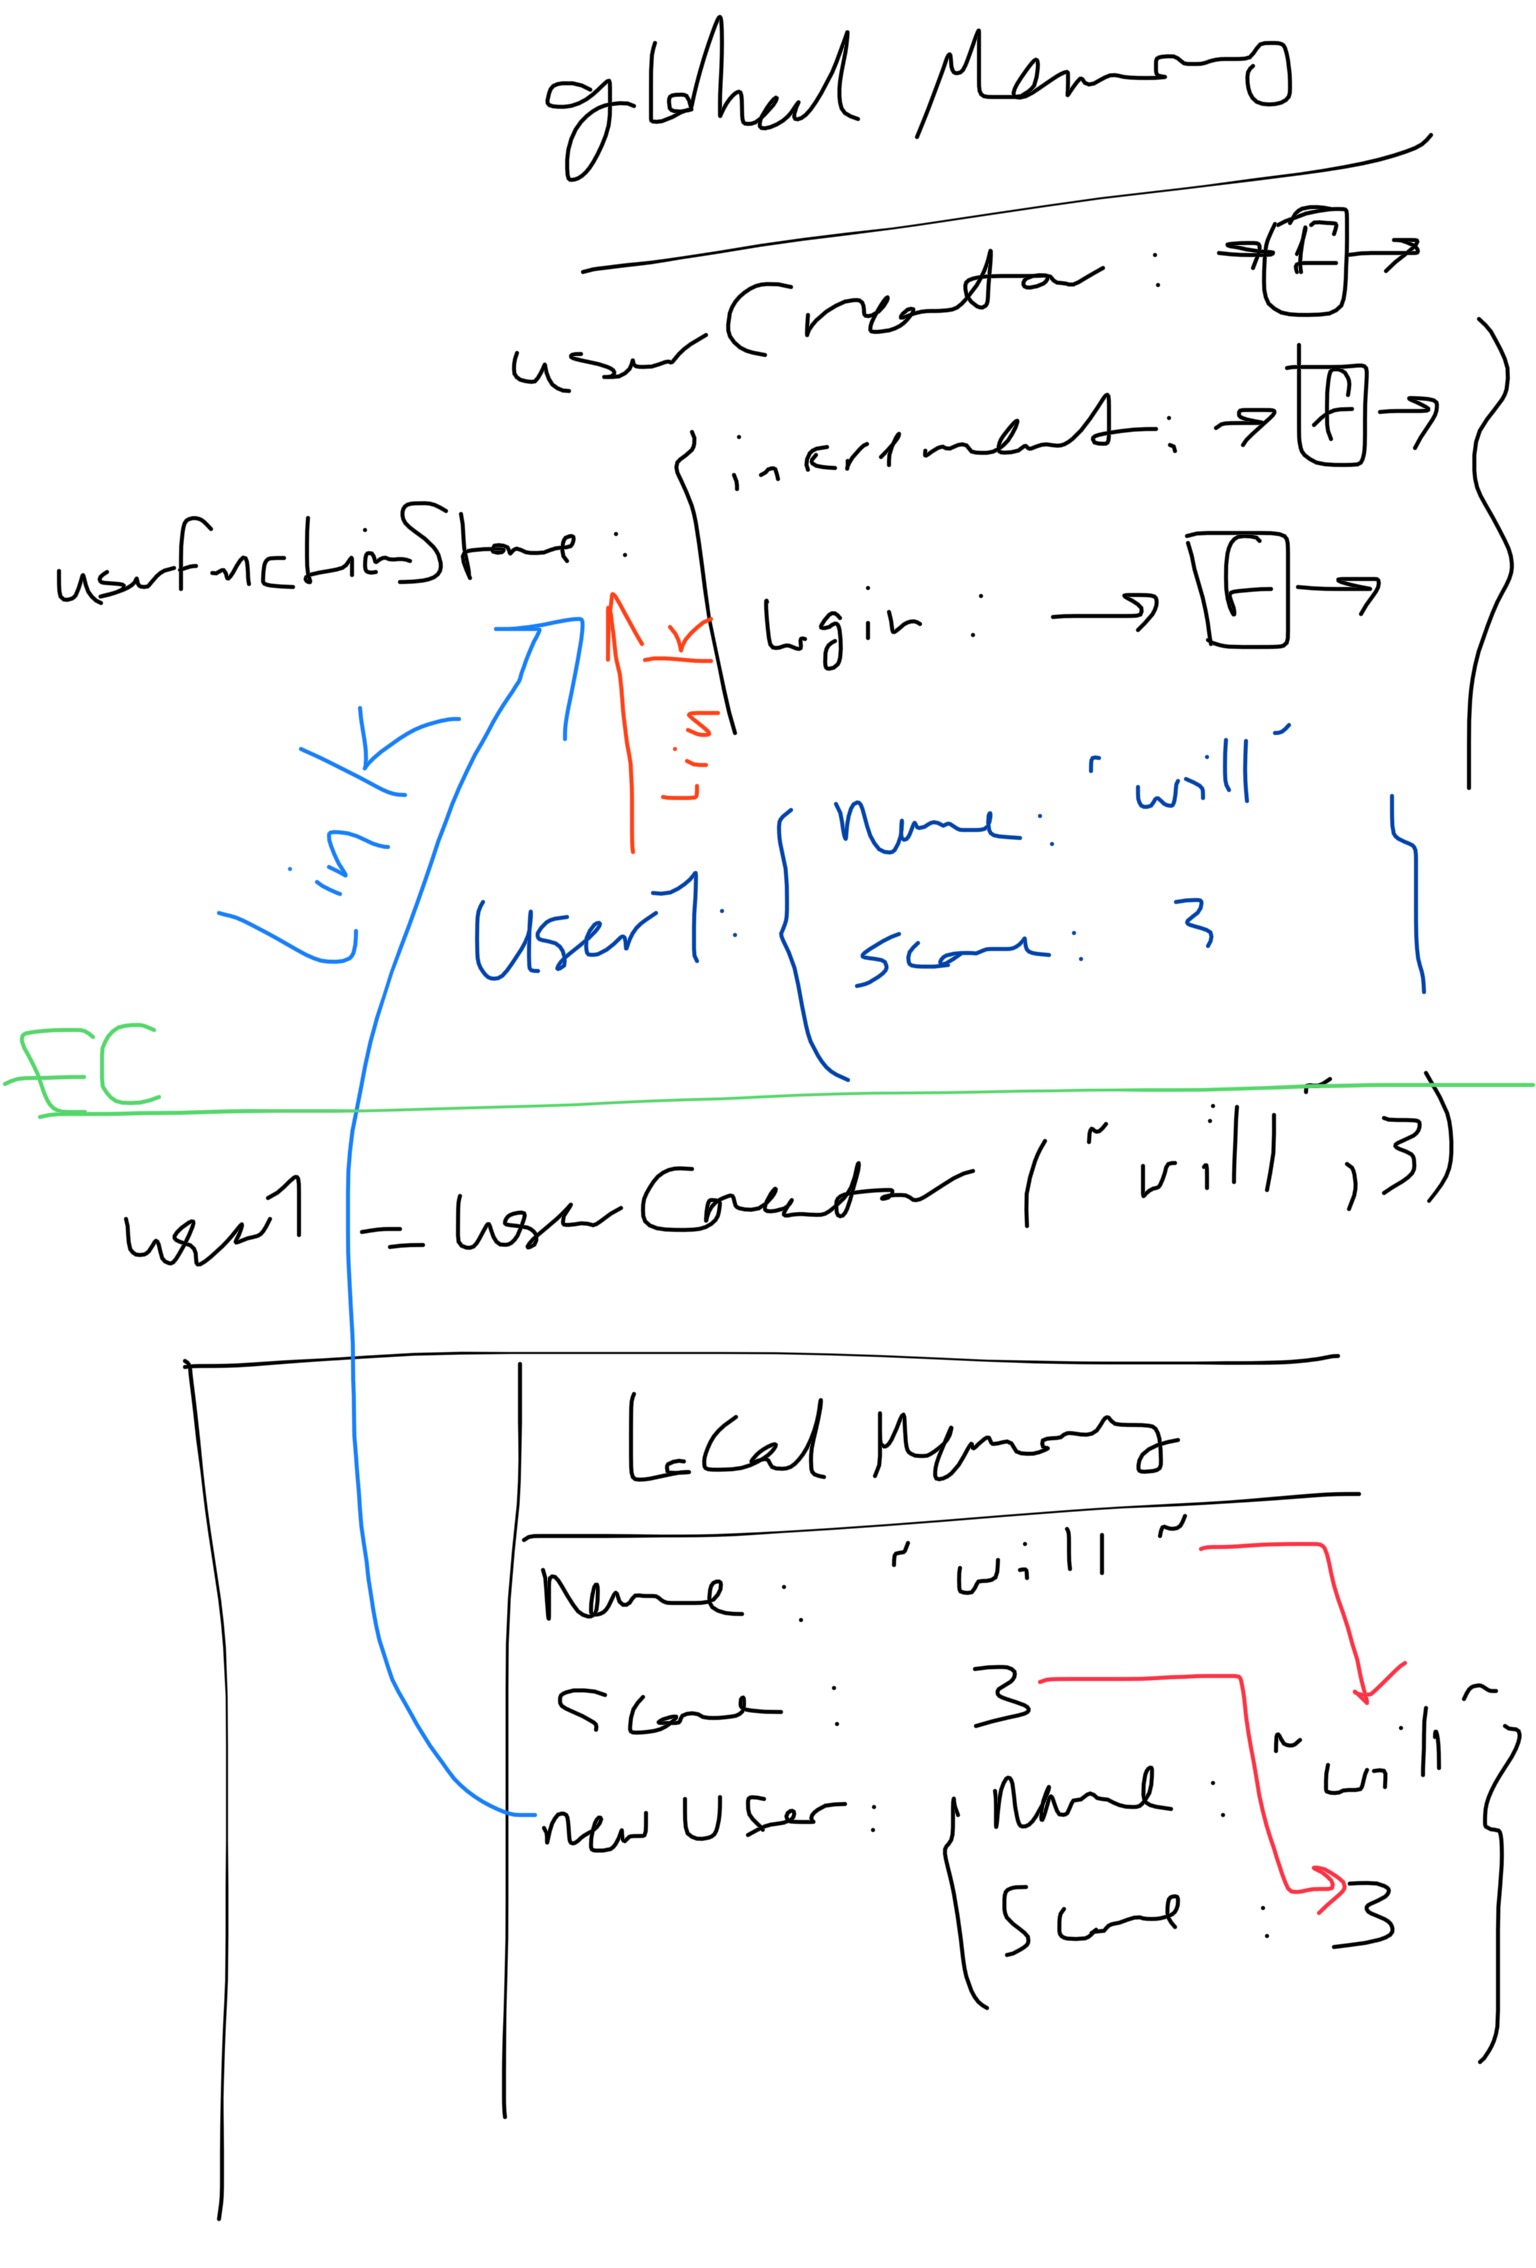 global Memory
userCreator : → F →
increment : → F →
userfnctionStore :
Login : → F →
Link
Link
User1 : { Name : "will"
Score : 3
EC
user1 = userCreator ("will", 3)
Local Memory
Name : "will"
Score : 3
new User : { Name : "will"
Score : 3 }